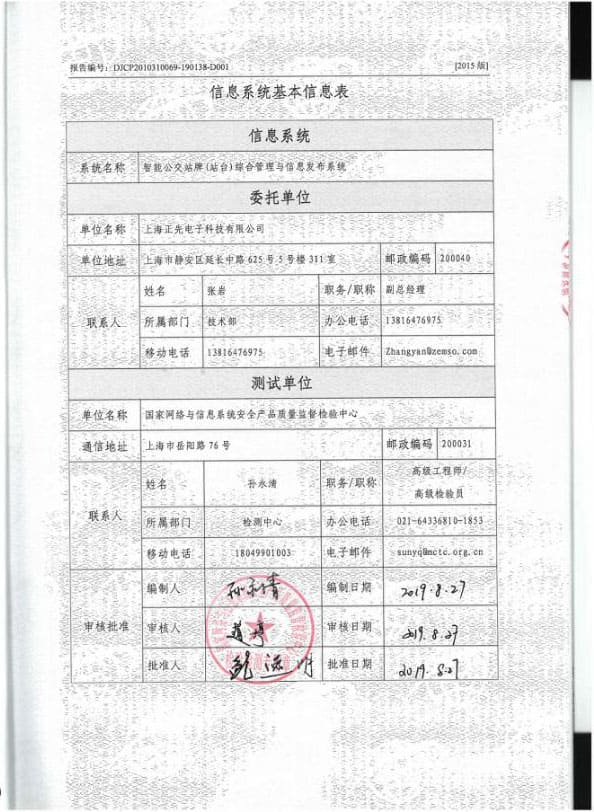 报告编号：DJCP2010310069-190138-D001 [2015 版]
信息系统基本信息表
信息系统
系统名称 智能公交站牌(站台)综合管理与信息发布系统
委托单位
单位名称 上海正先电子科技有限公司
单位地址 上海市静安区延长中路 625 号 5 号楼 311 室 邮政编码 200040
联系人
姓名 张岩 职务/职称 副总经理
所属部门 技术部 办公电话 13816476975
移动电话 13816476975 电子邮件 Zhangyan@zemso.com
测试单位
单位名称 国家网络与信息系统安全产品质量监督检验中心
通信地址 上海市岳阳路 76 号 邮政编码 200031
联系人
姓名 孙永清 职务/职称 高级工程师/
高级检验员
所属部门 检测中心 办公电话 021-64336810-1853
移动电话 18049901003 电子邮件 sunyq@mctc.org.cn
审核批准
编制人 孙永清 编制日期 2019.8.27
审核人 审核日期 2019.8.27
批准人 批准日期 2019.8.27